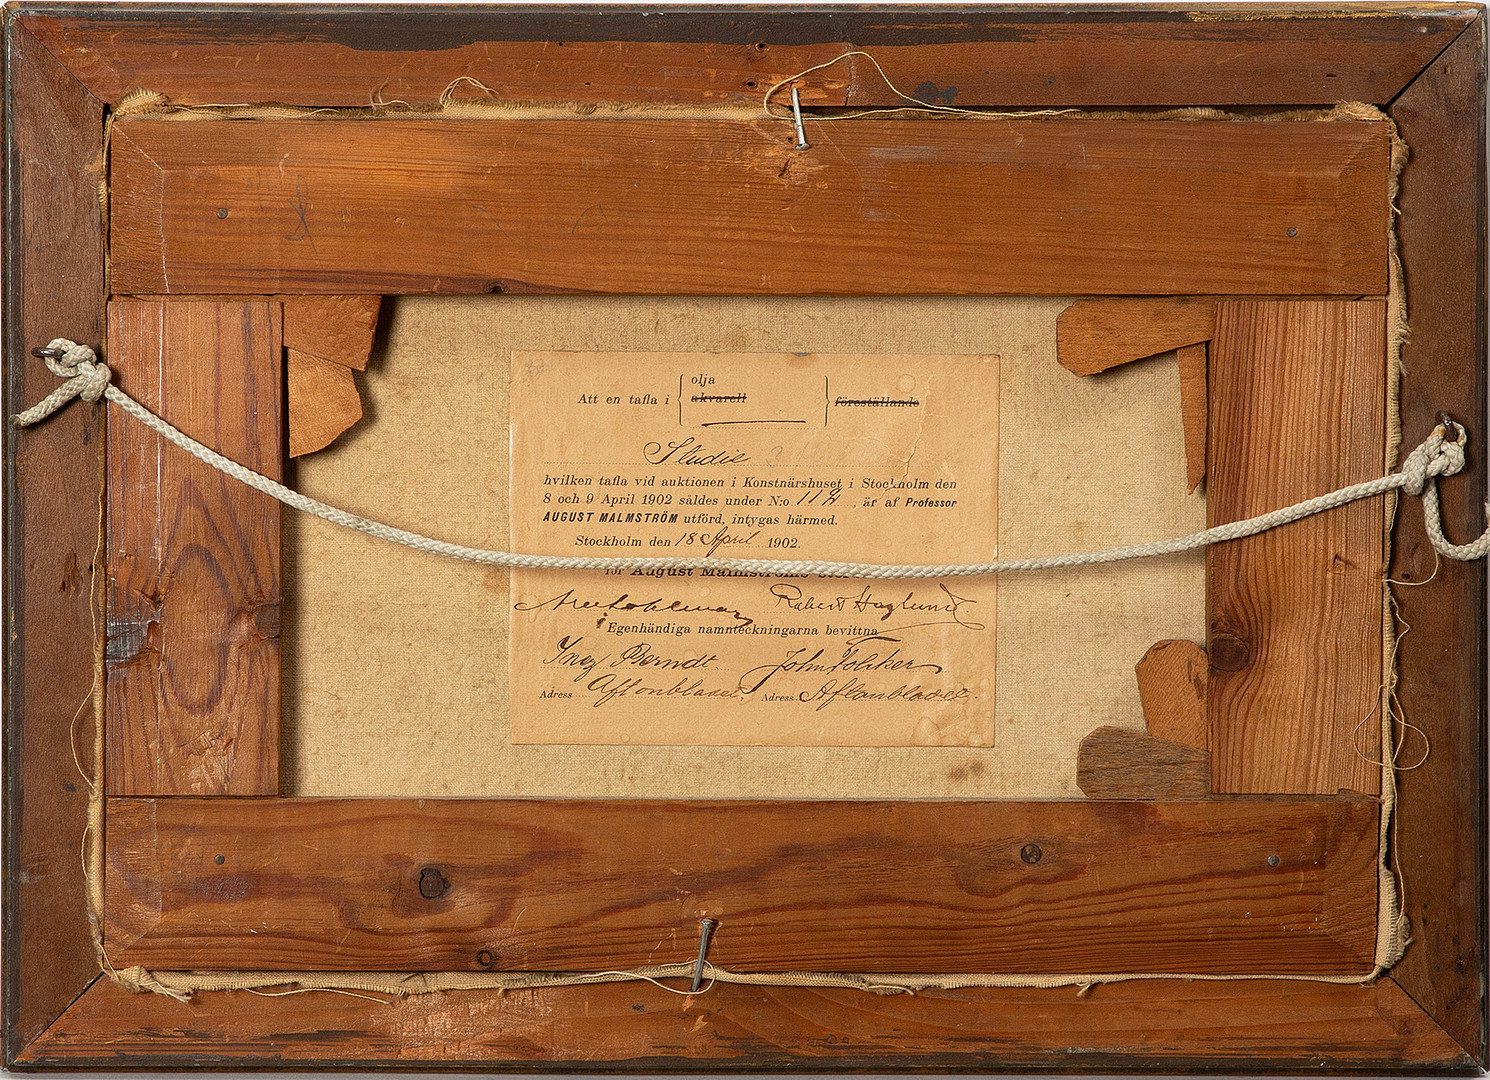 olja
Att en tafla i akvarell föreställande
Studie
hvilken tafla vid auktionen i Konstnärshuset i Stockholm den
8 och 9 April 1902 såldes under N:o , är af Professor
AUGUST MALMSTRÖM utförd, intygas härmed.
Stockholm den 18 April 1902.
för August Malmströms
Robert Haglund.
Egenhändiga namnteckningarna bevittna
Berndt. John
Adress Aftonbladet, Adress Aftonbladet.